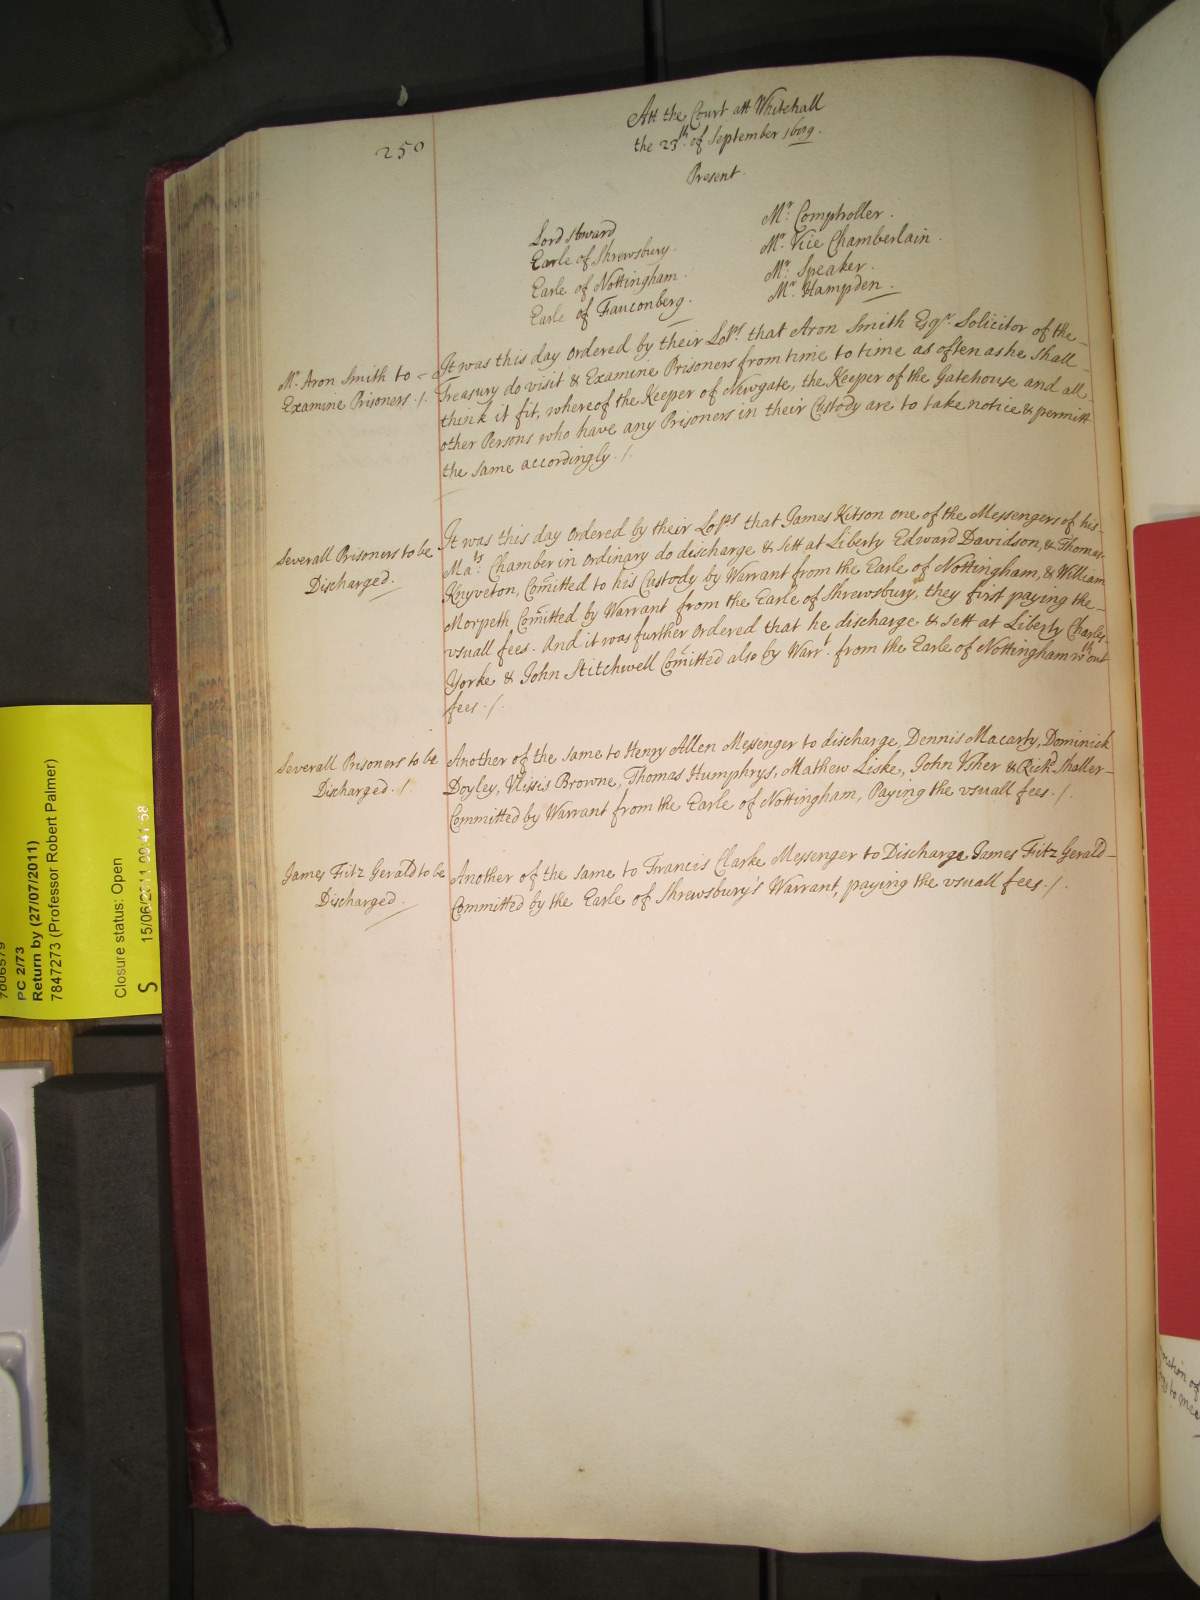 250
Att the Court att Whitehall
the 23th of September 1689.
Present.
Lord Steward
Earle of Shrewsbury.
Earle of Nottingham.
Earle of Fauconberg.
Mr. Comptroller.
Mr. Vice Chamberlain.
Mr. Speaker.
Mr. Hampden.
Mr. Aron Smith to
Examine Prisoners./.
It was this day ordered by their Lops. that Aron Smith Esqr. Solicitor of the
Treasury do visit & Examine Prisoners from time to time as often as he shall
think it fit, whereof the Keeper of Newgate, the Keeper of the Gatehouse and all
other Persons who have any Prisoners in their Custody are to take notice & permitt
the same accordingly./.
Severall Prisoners to be
Discharged.
It was this day ordered by their Lops that James Kitson one of the Messengers of his
Mats. Chamber in ordinary do discharge & sett at Liberty Edward Davidson, & Thomas
Knyveton, Comitted to his Custody by Warrant from the Earle of Nottingham, & William
Morpeth Comitted by Warrant from the Earle of Shrewsbury, they first paying the
vsuall fees. And it was further ordered that he discharge & sett at Liberty Charles
Yorke & John Stitchwell Comitted also by Warrt. from the Earle of Nottingham wthout
fees./.
Severall Prisoners to be
Discharged./
Another of the same to Henry Allen Messenger to discharge, Dennis Macarty, Dominick
Doyley, Vlissis Browne, Thomas Humphrys, Mathew Liske, John Vsher & Richd. Shaller
Committed by Warrant from the Earle of Nottingham, Paying the vsuall fees./.
James Fitz Gerald to be
Discharged.
Another of the same to Francis Clarke Messenger to Discharge James Fitz Gerald
Committed by the Earle of Shrewsbury's Warrant, paying the vsuall fees./.
PC 2/73
Return by (27/07/2011)
7847273 (Professor Robert Palmer)
Closure status: Open
S 15/06/2011 09:41:58